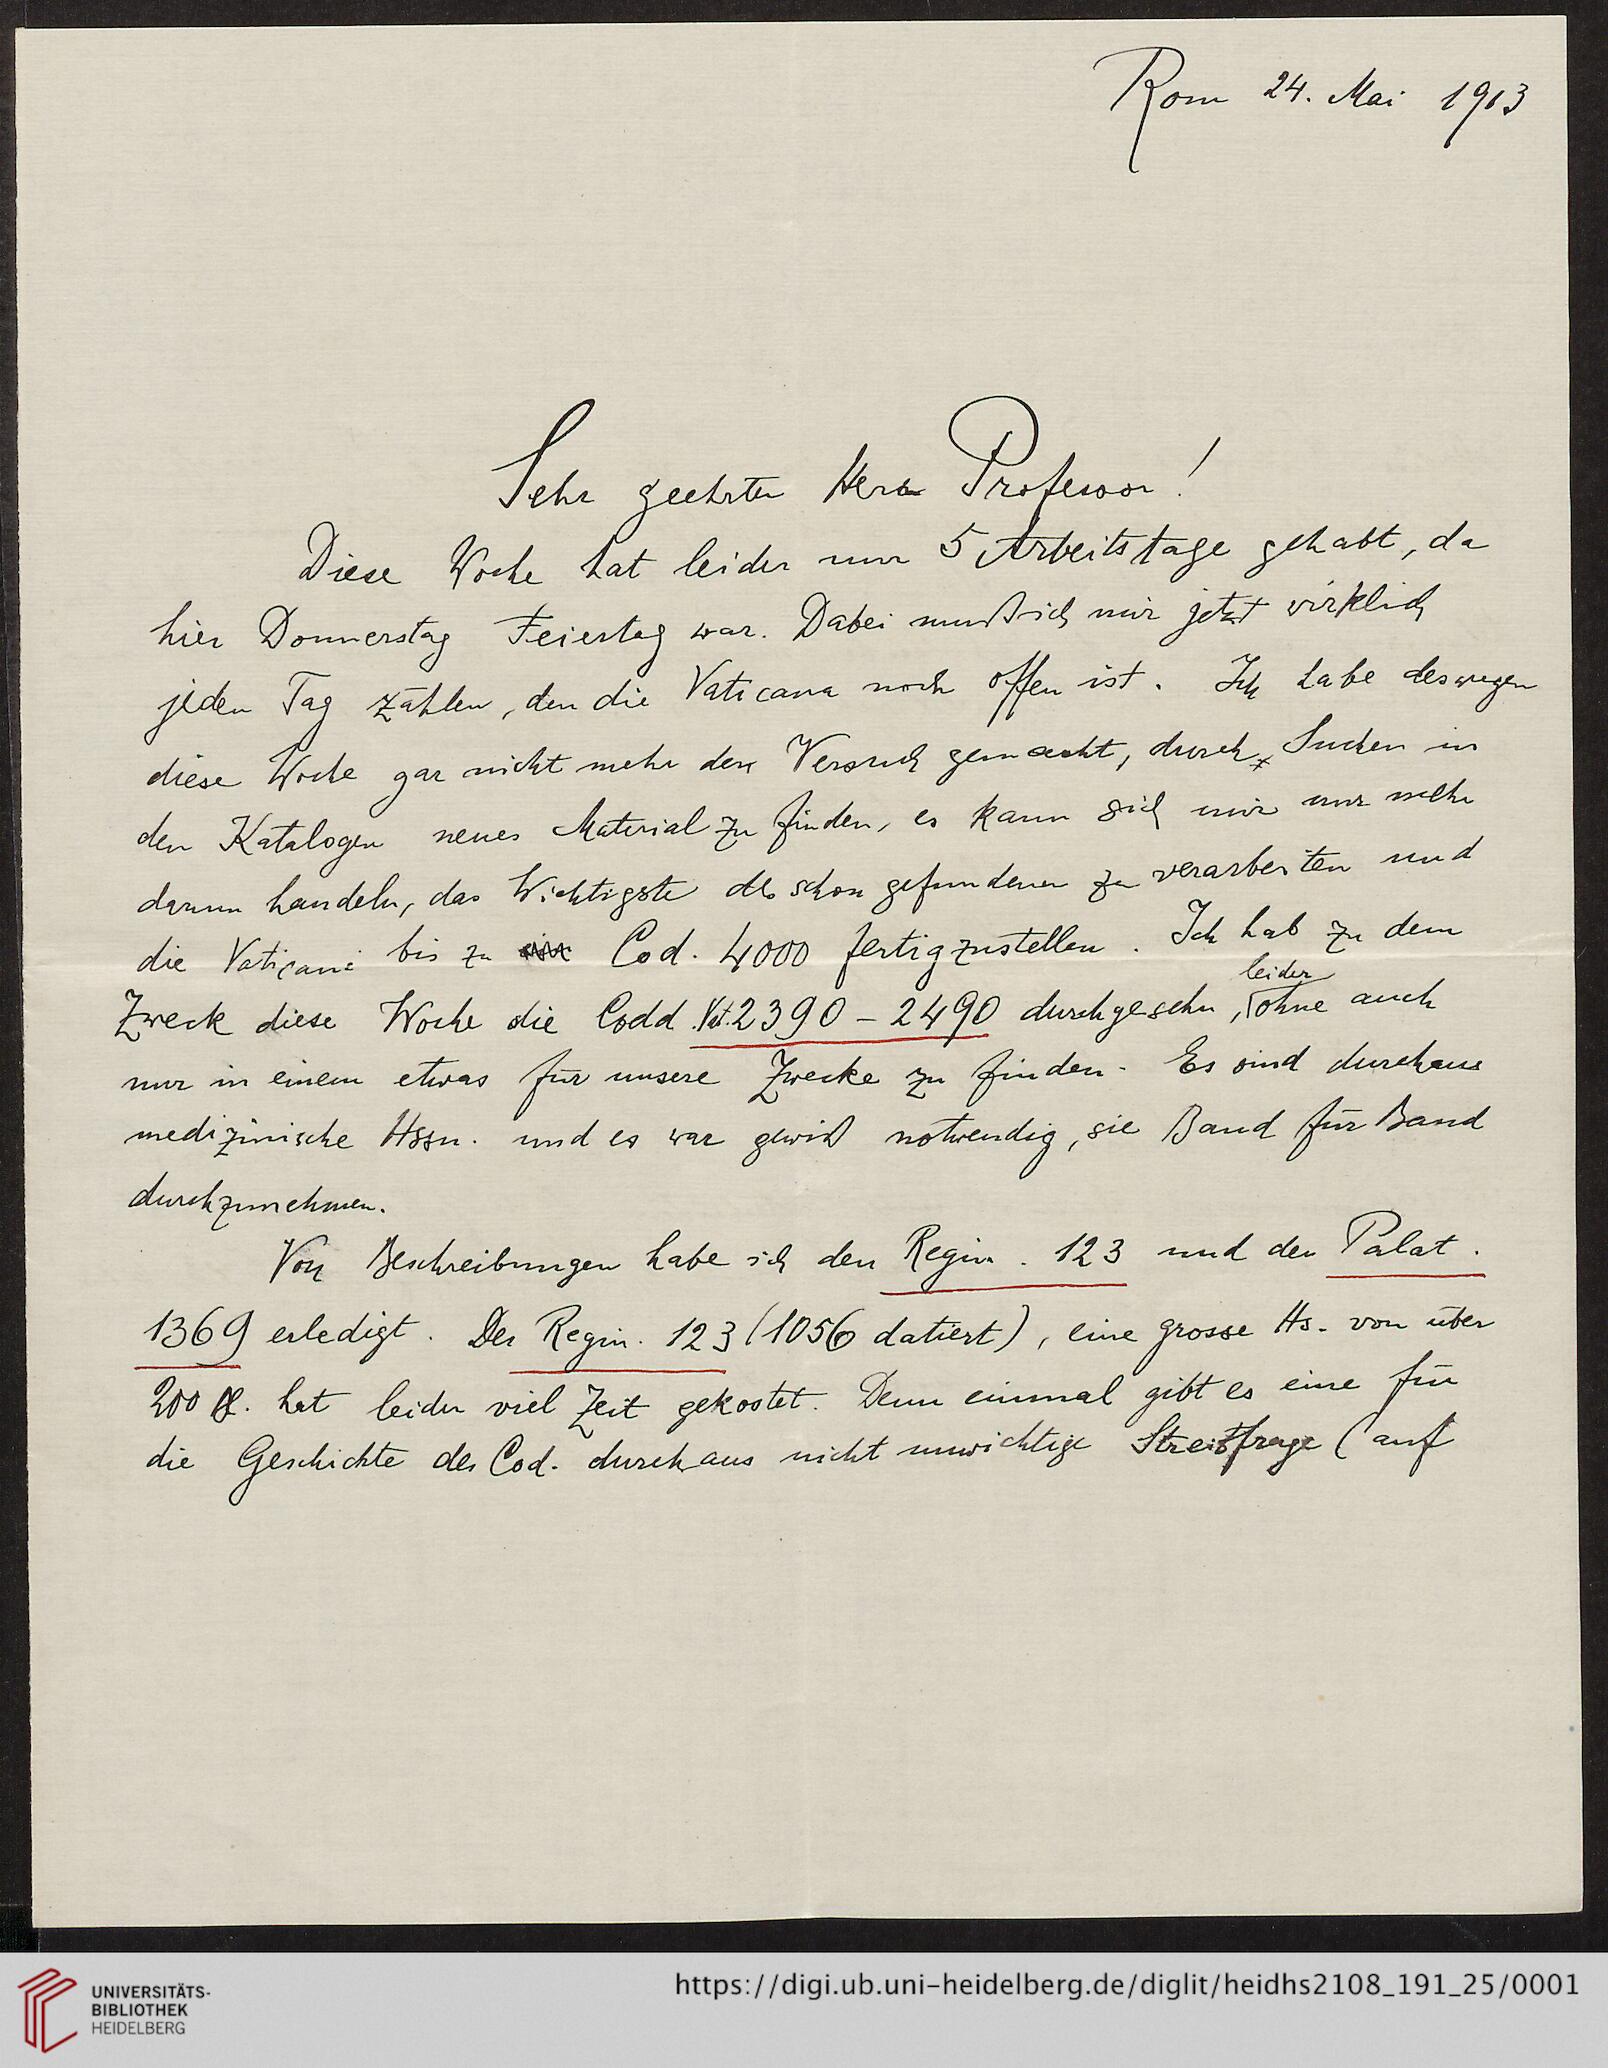 Rom 24. Mai 1913
Sehr geehrter Herr Professor!
Diese Woche hat leider nur 5 Arbeitstage gehabt, da
hier Donnerstag Feiertag war. Dabei muß ich mir jetzt wirklich
jeden Tag zählen, den die Vaticana noch offen ist. Ich habe deswegen
diese Woche gar nicht mehr den Versuch gemacht, durch Suchen in
den Katalogen neues Material zu finden, es kann sich nur mehr
darum handeln, das Wichtigste des schon gefundenen zu verarbeiten und
die Vaticani bis zu Cod. 4000 fertigzustellen. Ich hab zu dem
leider
Zweck diese Woche die Codd. Vat. 2390 – 2490 durchgesehn, ohne auch
nur in einem etwas für unsere Zwecke zu finden. Es sind durchaus
medizinische Hssn. und es war gewiß notwendig, sie Band für Band
durchzunehmen.
Von Beschreibungen habe ich den Regin. 123 und den Palat.
1369 erledigt. Der Regin. 123 (1056 datiert), eine grosse Hs. von über
200 ff. hat leider viel Zeit gekostet. Denn einmal gibt es eine für
die Geschichte des Cod. durchaus nicht unwichtige Streitfrage (auf
UNIVERSITÄTS-
BIBLIOTHEK
HEIDELBERG
https://digi.ub.uni-heidelberg.de/diglit/heidhs2108_191_25/0001